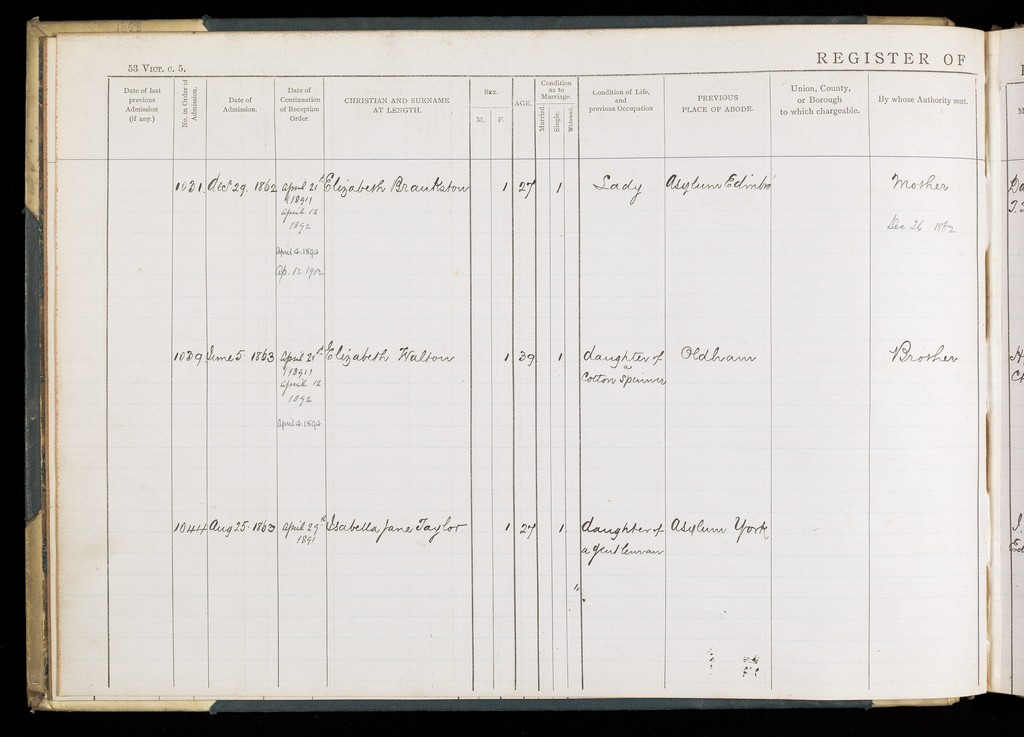 53 VICT. c. 5.
REGISTER OF
Date of last previous Admission (if any.)
No. in Order of Admission.
Date of Admission.
Date of Continuation of Reception Order.
CHRISTIAN AND SURNAME AT LENGTH.
SEX.
M.
F.
AGE.
Condition as to Marriage.
Married.
Single.
Widowed.
Condition of Life, and previous Occupation
PREVIOUS PLACE OF ABODE.
Union, County, or Borough to which chargeable.
By whose Authority sent.
1031 Decr 29. 1862 April 21st Elizabeth Brankston 1 27 1 Lady Asylum Edinbro' Mother
1891
April 12
1892
Dec 26 1862
April 4. 1894
Ap. 12 1902
1039 June 5 1863 April 21st Elizabeth Walton 1 39 1 daughter of Oldham Brother
1891
a
April 12
Cotton Spinner
1892
April 4. 1894
1044 Aug 25. 1863 April 29th Isabella Jane Taylor 1 27 1 daughter of Asylum York
1891
a gentleman